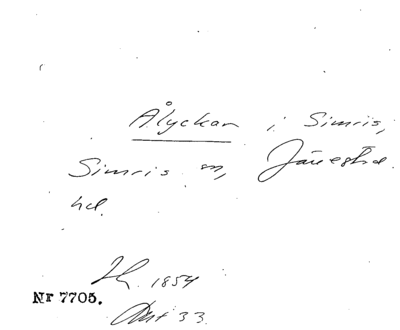 Ålyckan i Simris,
Simris sn, Järrestad
hd.
1854
Nr 7705.
33